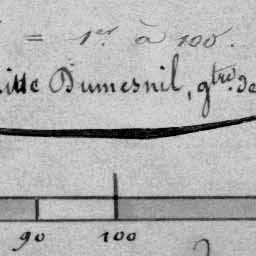 = 1er. à 100.
Dumesnil, gtre. de
90 100